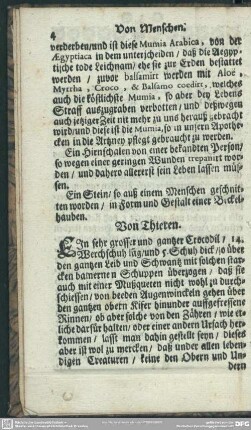 4 Von Menschen.
verderben/und ist diese Mumia Arabica, von der
Ægyptiaca in dem unterscheiden / daß die Aegyp-
tische tode Leichnam/ ehe sie zur Erden bestattet
werden / zuvor balsamirt werden mit Aloë,
Myrrha, Croco, & Balsamo condirt, welches
auch die köstlichste Mumia, so aber bey Lebens
Straff auszugraben verbotten / und deßwegen
auch jetziger Zeit nit mehr zu uns herauß gebracht
wird/und diese ist die Mumia, so in unsern Apothe-
cken in die Artzney pflegt gebraucht zu werden.
Ein Hirnschalen von einer bekandten Person/
so wegen einer geringen Wunden trepanirt wor-
den / und dahero allererst sein Leben lassen müs-
sen.
Ein Stein/ so auß einem Menschen geschnit-
ten worden / in Form und Gestalt einer Bickel-
hauben.
Von Thieren.
EIn sehr grosser und gantzer Crocodil / 14.
Werckschuh lang/und 5. Schuh dick/ über
den gantzen Leib und Schwantz mit solchen star-
cken Schuppen überzogen / daß sie
auch mit einer Mußqueten nicht wohl zu durch-
schiessen / von beeden Augenwinckeln gehen über
den gantzen obern Kifer hinunder auffgefressene
Rinnen / ob aber solche von den Zähren / wie et-
liche darfür halten / oder einer andern Ursach her-
kommen / lasst man dahin gestellt seyn / dieses
aber ist wol zu mercken / daß under allen leben-
digen Creaturen / keine den Obern und Un-
dern